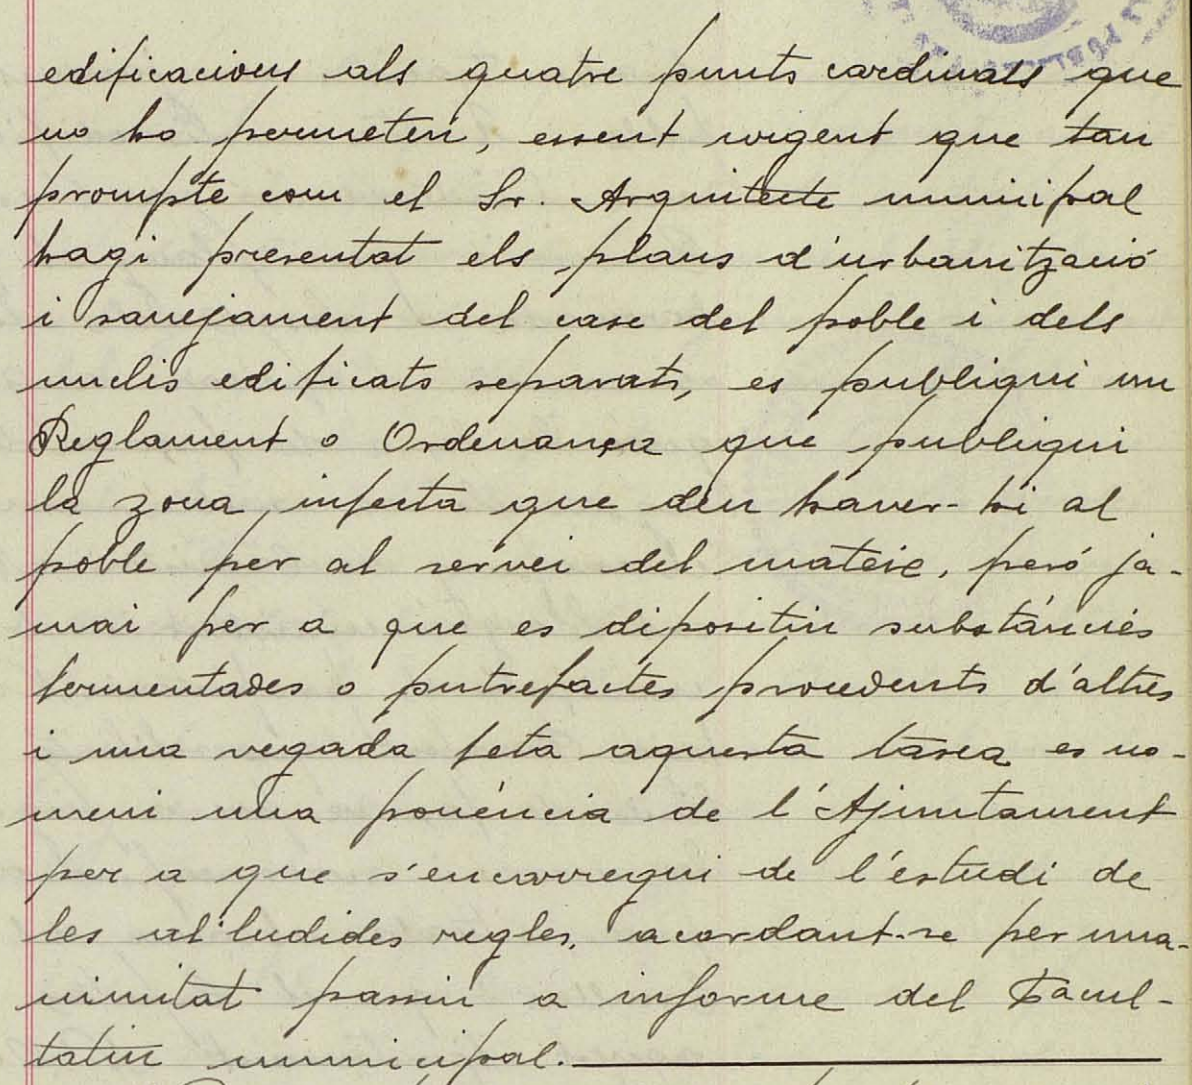 edificacions als quatre punts cardinals que
no ho permetin, essent urgent que tan
prompte com el Sr. Arquitecte municipal
hagi presentat els plans d'urbanització
i sanejament del casc del poble i dels
nuclis edificats separats, es publiqui un
Reglament o Ordenança que publiqui
la zona infecta que deu haver-hi al
poble per al servei del mateix, peró ja-
mai per a que es dipositin substáncies
fermentades o putrefactes procedents d'altres
i una vegada feta aquesta tasca es no-
meni una ponéncia de l'Ajuntament
per a que s'encarregui de l'estudi de
les al·ludides regles, acordant-se per una-
nimitat passin a informe del Facul-
tatiu municipal.